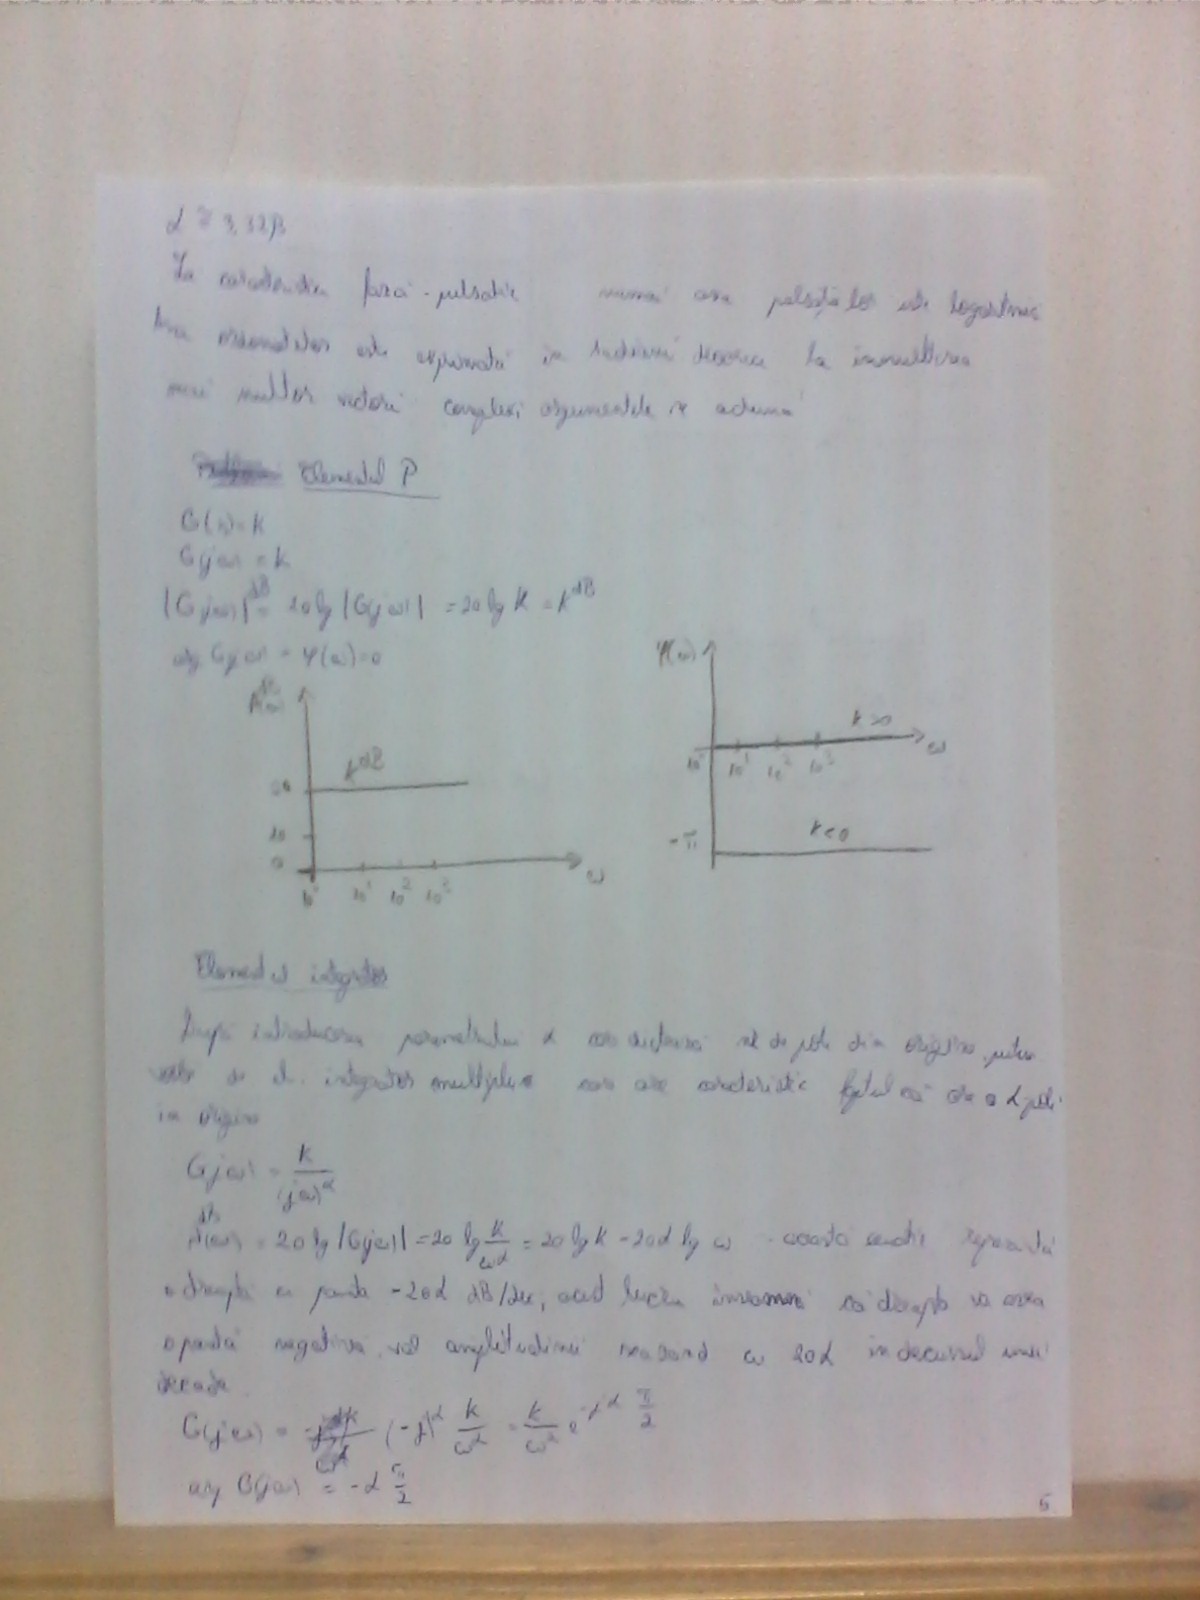 α ≅ 3,32β
La caracteristica fază-pulsație numai axa pulsațiilor este logaritmică
Axa ordonatelor este exprimată în radiani deoarece la înmulțirea
mai multor vectori complecși argumentele se adună
Elementul P
G(s)=K
G(jω) = K
|G(jω)|^dB = 20 lg |G(jω)| = 20 lg K = K^dB
arg G(jω) = φ(ω)=0
A^dB(ω)
K^dB
20
10
0
10^0 10^1 10^2 10^3
ω
φ(ω)
K>0
ω
10^0 10^1 10^2 10^3
K<0
-π
Elementul integrator
După introducerea parametrului α care nr. de poli din origine, putem
vorbi de el. integrator multiplu care are caracteristic faptul că are α poli
în origine
G(jω) = K/(jω)^α
A^dB(ω) = 20 lg |G(jω)| = 20 lg K/ω^α = 20 lg K - 20α lg ω - această ecuație reprezintă
o dreaptă cu panta -20α dB/dec, acest lucru înseamnă că dreapta va avea
o pantă negativă, val amplitudinii scăzând cu 20α în decursul unei
decade.
G(jω) = (-j)^α K/ω^α = K/ω^α e^-jα π/2
arg G(jω) = -α π/2
5